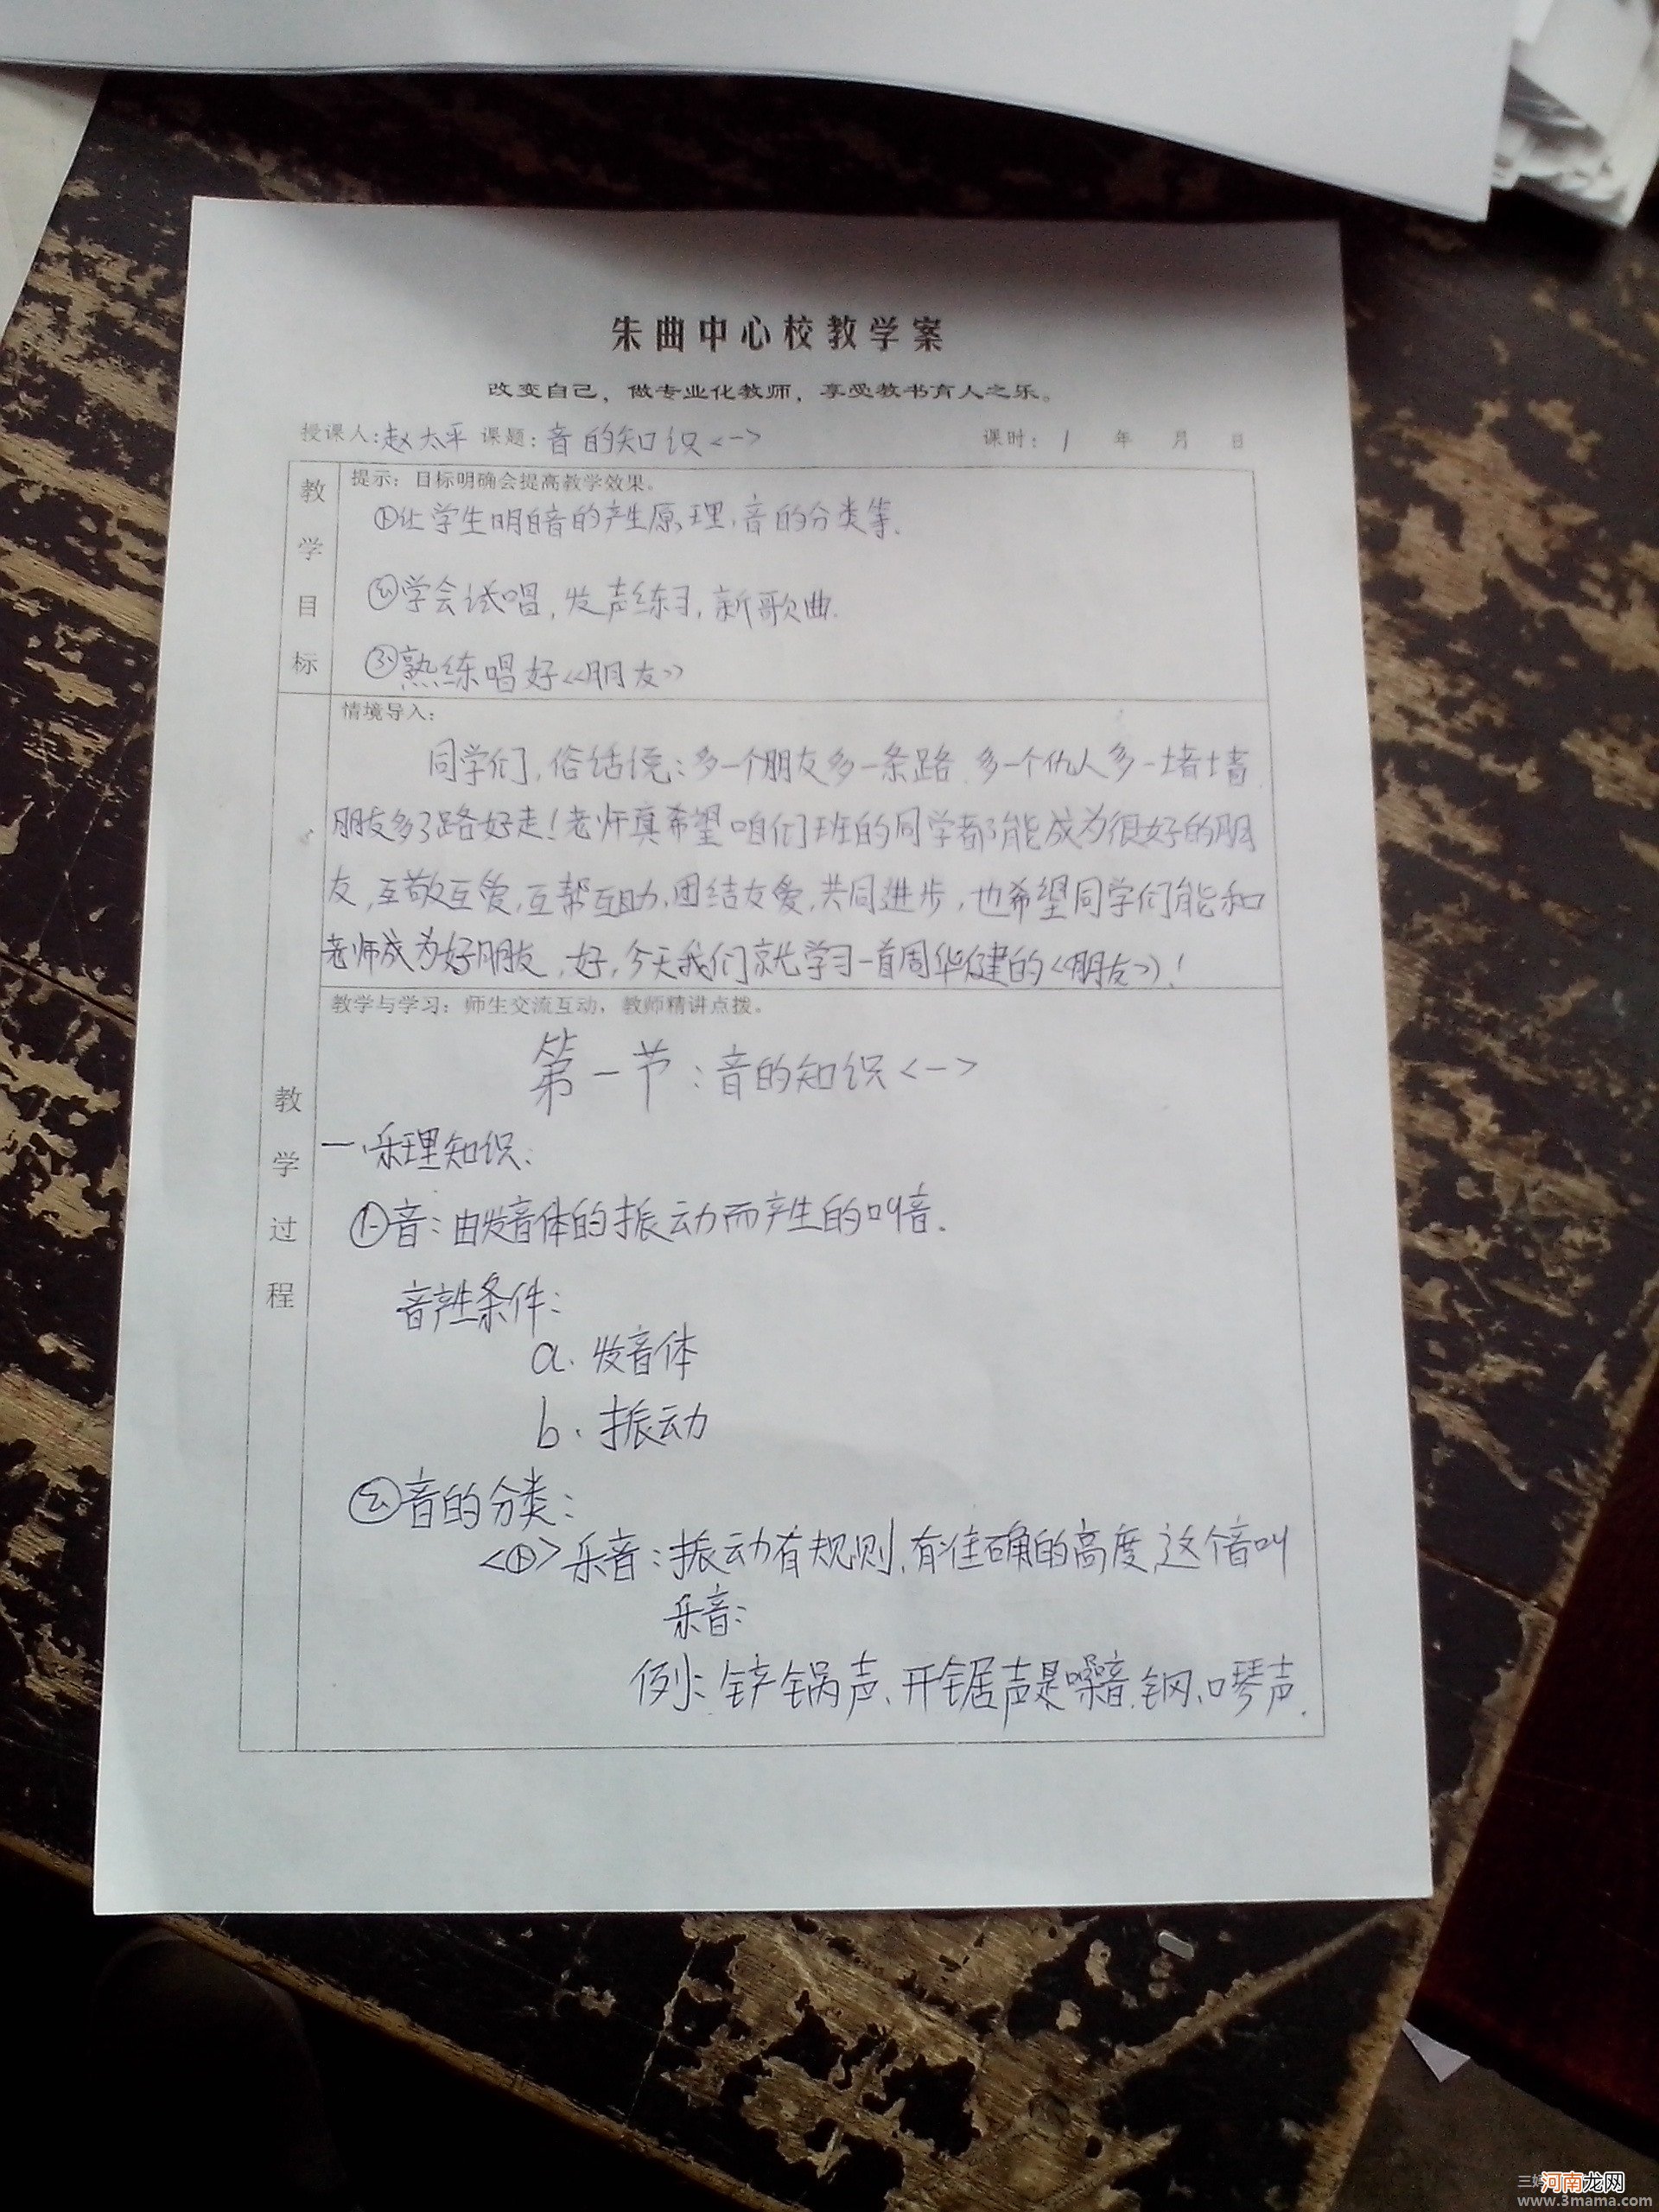 朱曲中心校教学案
改变自己，做专业化教师，享受教书育人之乐。
授课人:赵太平 课题:音的知识<一> 课时: 1 年 月 日
教学目标
提示: 目标明确会提高教学效果。
①让学生明白音的产生原理,音的分类等.
②学会试唱,发声练习,新歌曲.
③熟练唱好《朋友》
教学过程
情境导入:
同学们,俗话说:多一个朋友多一条路,多一个仇人多一堵墙,
朋友多了路好走!老师真希望咱们班的同学都能成为很好的朋
友,互敬互爱,互帮互助,团结友爱,共同进步,也希望同学们能和
老师成为好朋友,好,今天我们就学习一首周华健的《朋友》!
教学与学习: 师生交流互动，教师精讲点拨。
第一节:音的知识<一>
一、乐理知识:
①音:由发音体的振动而产生的叫音.
音产生条件:
a. 发音体
b. 振动
②音的分类:
<①>乐音:振动有规则,有准确的高度,这个音叫
乐音:
例:铲锅声、开锯声是噪音,钢、口琴声.
河南龙网
www.3mama.com